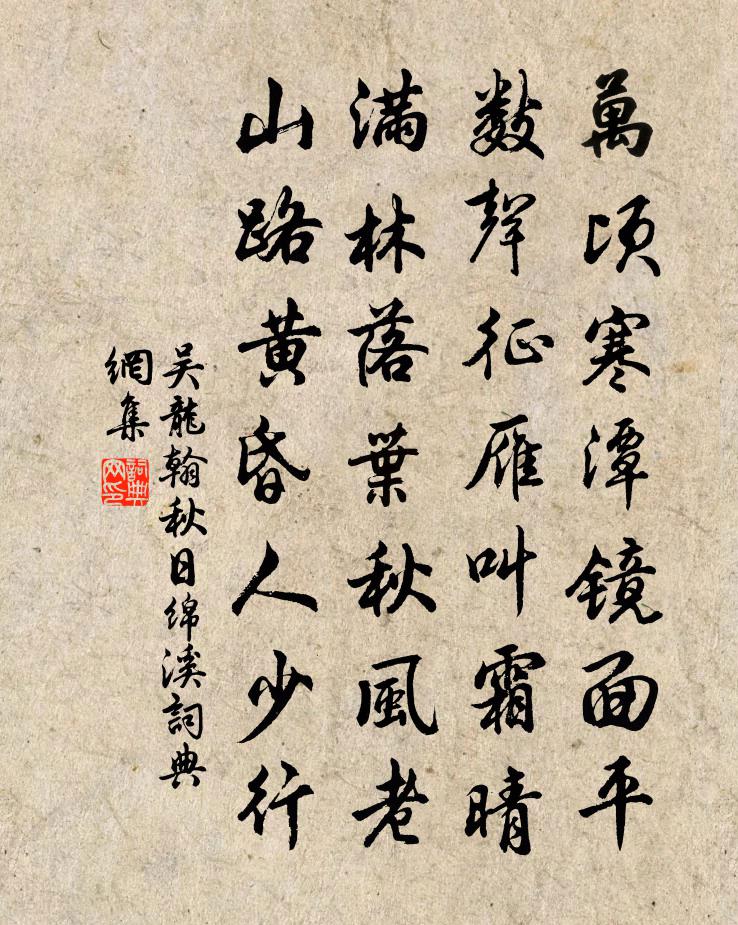 萬頃寒潭鏡面平
數聲征雁叫霜晴
滿林落葉秋風老
山路黄昏人少行
吴龍翰秋日绵溪詞典
網集
詞典
网印